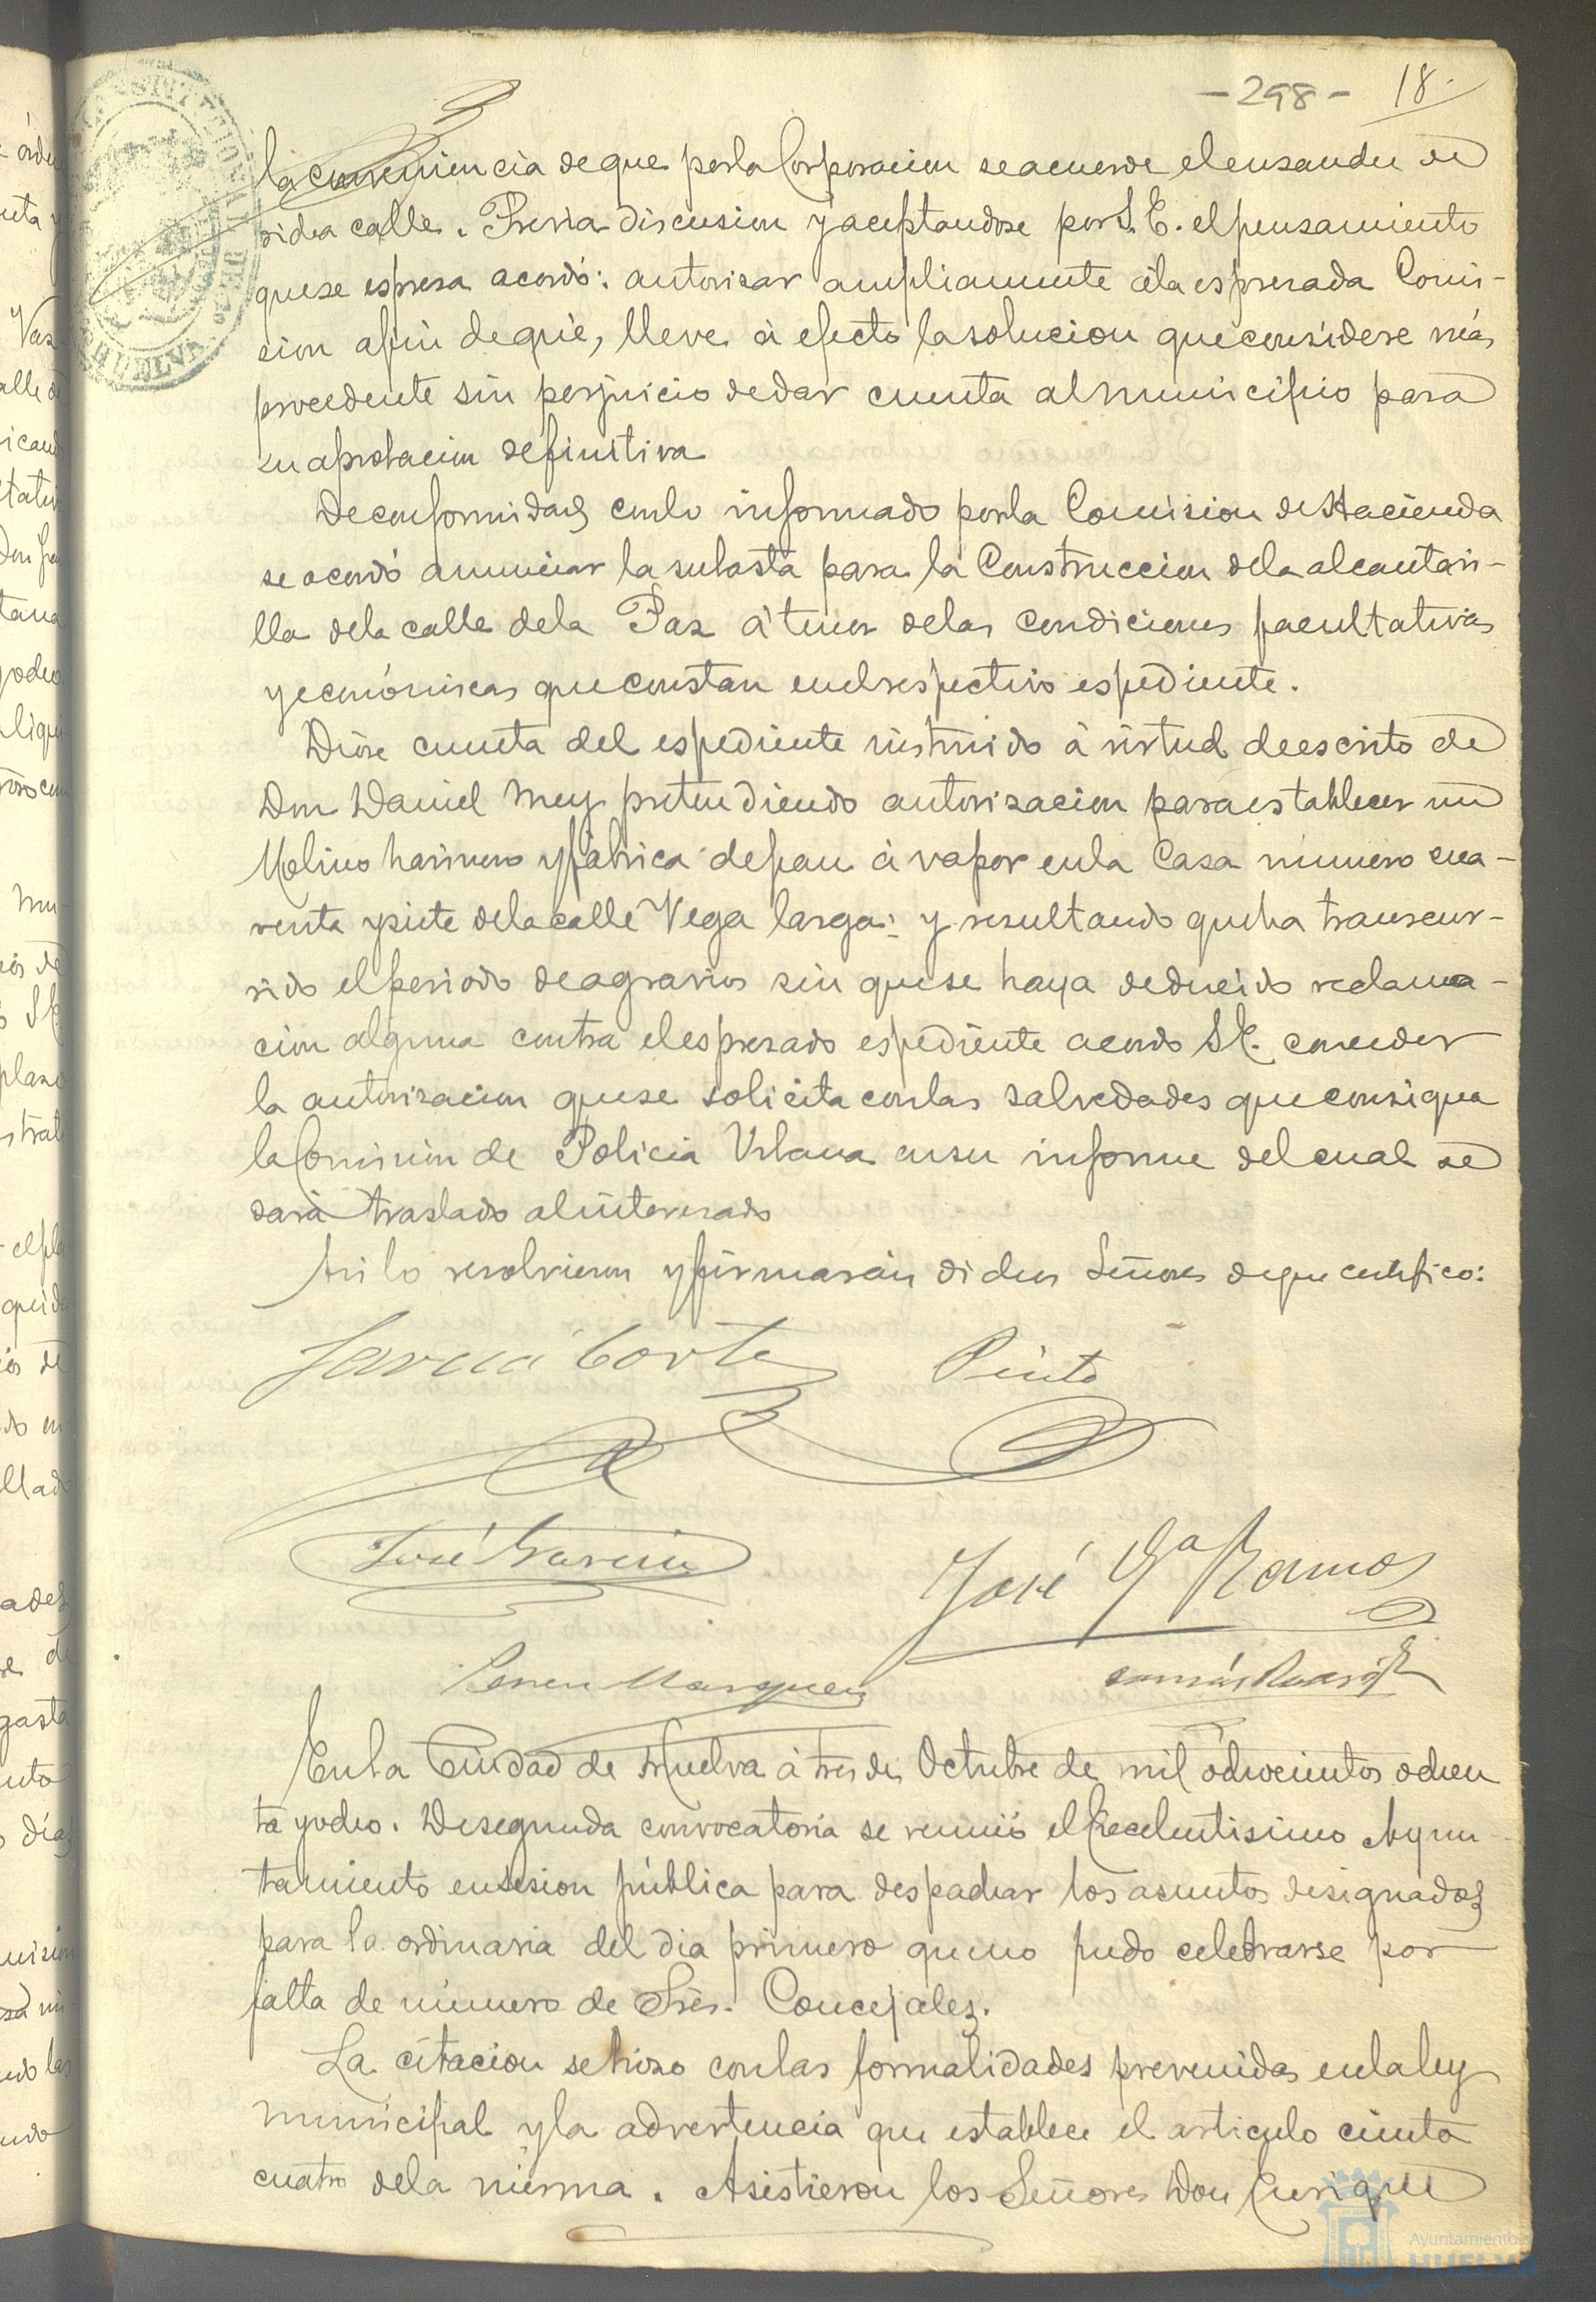 -298- 18.
la conveniencia de que por la Corporacion se acuerde el ensanche de
ridea calle. Previa discusion y aceptandose por S. E. el pensamiento
que se espresa acordó: autorisar ampliamente á la espresada Comi-
sion afin de que, lleve á efecto la solucion que considere más
procedente sin perjuicio de dar cuenta al municipio para
su aprobacion definitiva
De conformidad con lo informado por la Comision de Hacienda
se acordó anunciar la subasta para la Construccion de la alcantari-
lla de la calle de la Paz á tenor de las condiciones facultativas
y económicas que constan en el respectivo espediente.
Dióse cuenta del espediente instruido á virtud de escrito de
Don Daniel Mey pretendiendo autorisacion para establecer un
Molino harinero y fábrica de pan á vapor en la Casa número cua-
renta y siete de la calle Vega larga: y resultando que ha transcur-
rido el periodo de agravios sin que se haya deducido reclama-
cion alguna contra el espresado espediente acordo S. E. conceder
la autorisacion que se solicita con las salvedades que consigna
la Comision de Policia Urbana en su informe del cual se
dará traslado al interesado
Asi lo resolvieron y firmarán dichos Señores de que certifico:
Garcia Corte Pinto
José Garcia José Ga Ramos
Marquez
En la Ciudad de Huelva á tres de Octubre de mil ochocientos ochen
ta y ocho. De segunda convocatoria se reunió el Excelentisimo Ayun-
tamiento en sesion pública para despachar los asuntos designados
para la ordinaria del dia primero que no pudo celebrarse por
falta de número de Sres. Concejales.
La citacion se hizo con las formalidades prevenidas en la ley
municipal y la advertencia que establece el articulo ciento
cuatro de la misma. Asistieron los Señores Don Enrique
Ayuntamiento de
HUELVA